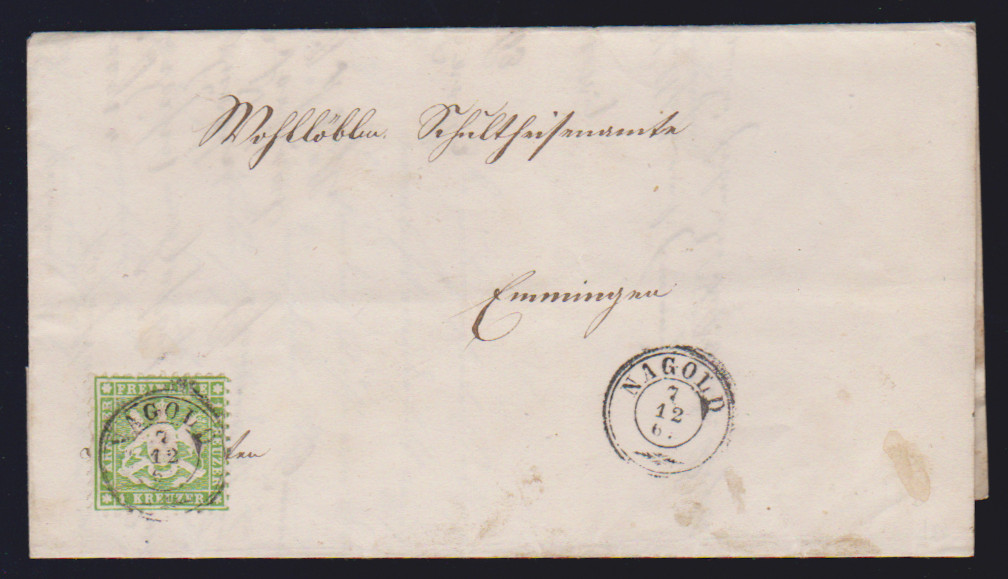 Wohllöblm. Schultheisenamte
Emmingen
NAGOLD
7
12
6.
FREIMARKE
NAGOLD
7
12
6
KREUZER
1 KREUZER